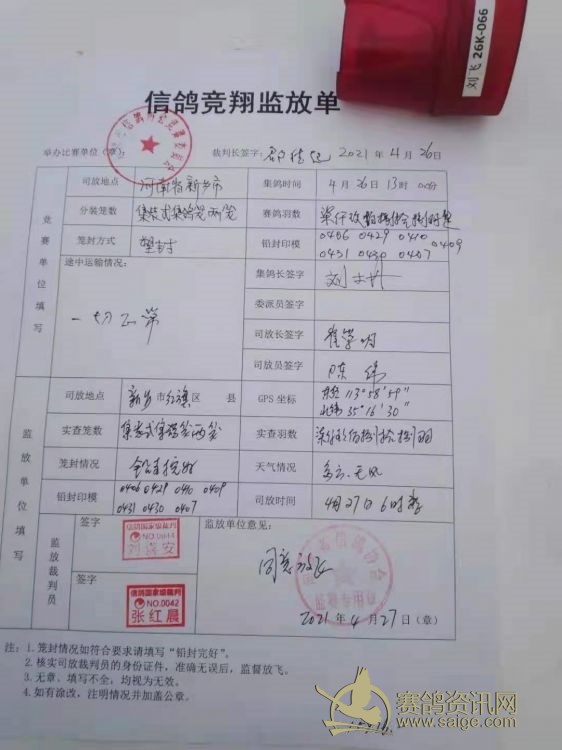 刘飞 26K-066
信鸽竞翔监放单
举办比赛单位(章): 裁判长签字: 2021 年 4 月 26日
司放地点 河南省新乡市 集鸽时间 4 月 26日 13时 00分
分装笼数 集装式集鸽笼两笼 赛鸽羽数
笼封方式 塑封 铅封印模 0406 0429 0410 0409
0431 0430 0407
途中运输情况: 集鸽长签字
委派员签字
一切正常 司放长签字
司放员签字 陈
竞赛单位填写
司放地点 新乡市红旗区 县 GPS 坐标 东经 113°58′59″
北纬 35°16′30″
实查笼数 集装式集鸽笼两笼 实查羽数
笼封情况 铅封完好 天气情况 多云、无风
铅封印模 0406 0429 0410 0409
0431 0430 0407 司放时间 4月27日 6时整
监放单位填写
监放裁判员
签字 监放单位意见:
信鸽国家级裁判
签字
信鸽国家级裁判
NO.0042
张红晨
同意放飞
2021 年 4 月 27日(章)
注: 1. 笼封情况如符合要求请填写“铅封完好”。
2. 核实司放裁判员的身份证件,准确无误后,监督放飞。
3. 无章、填写不全,均视为无效。
4. 如有涂改,注明情况并加盖公章。
赛鸽资讯网
www.saige.com